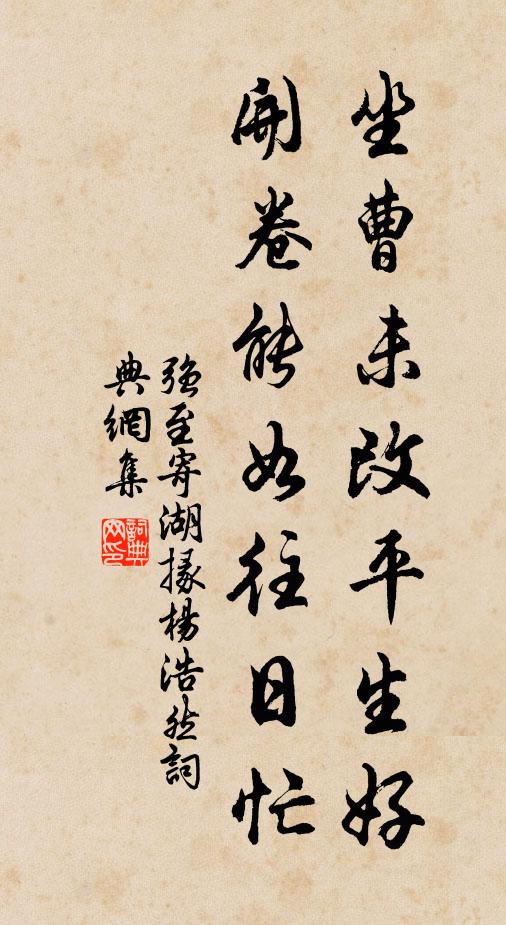 坐曹未改平生好
開卷能如往日忙
強至寄湖掾楊浩然詞
典網集
詞典網印